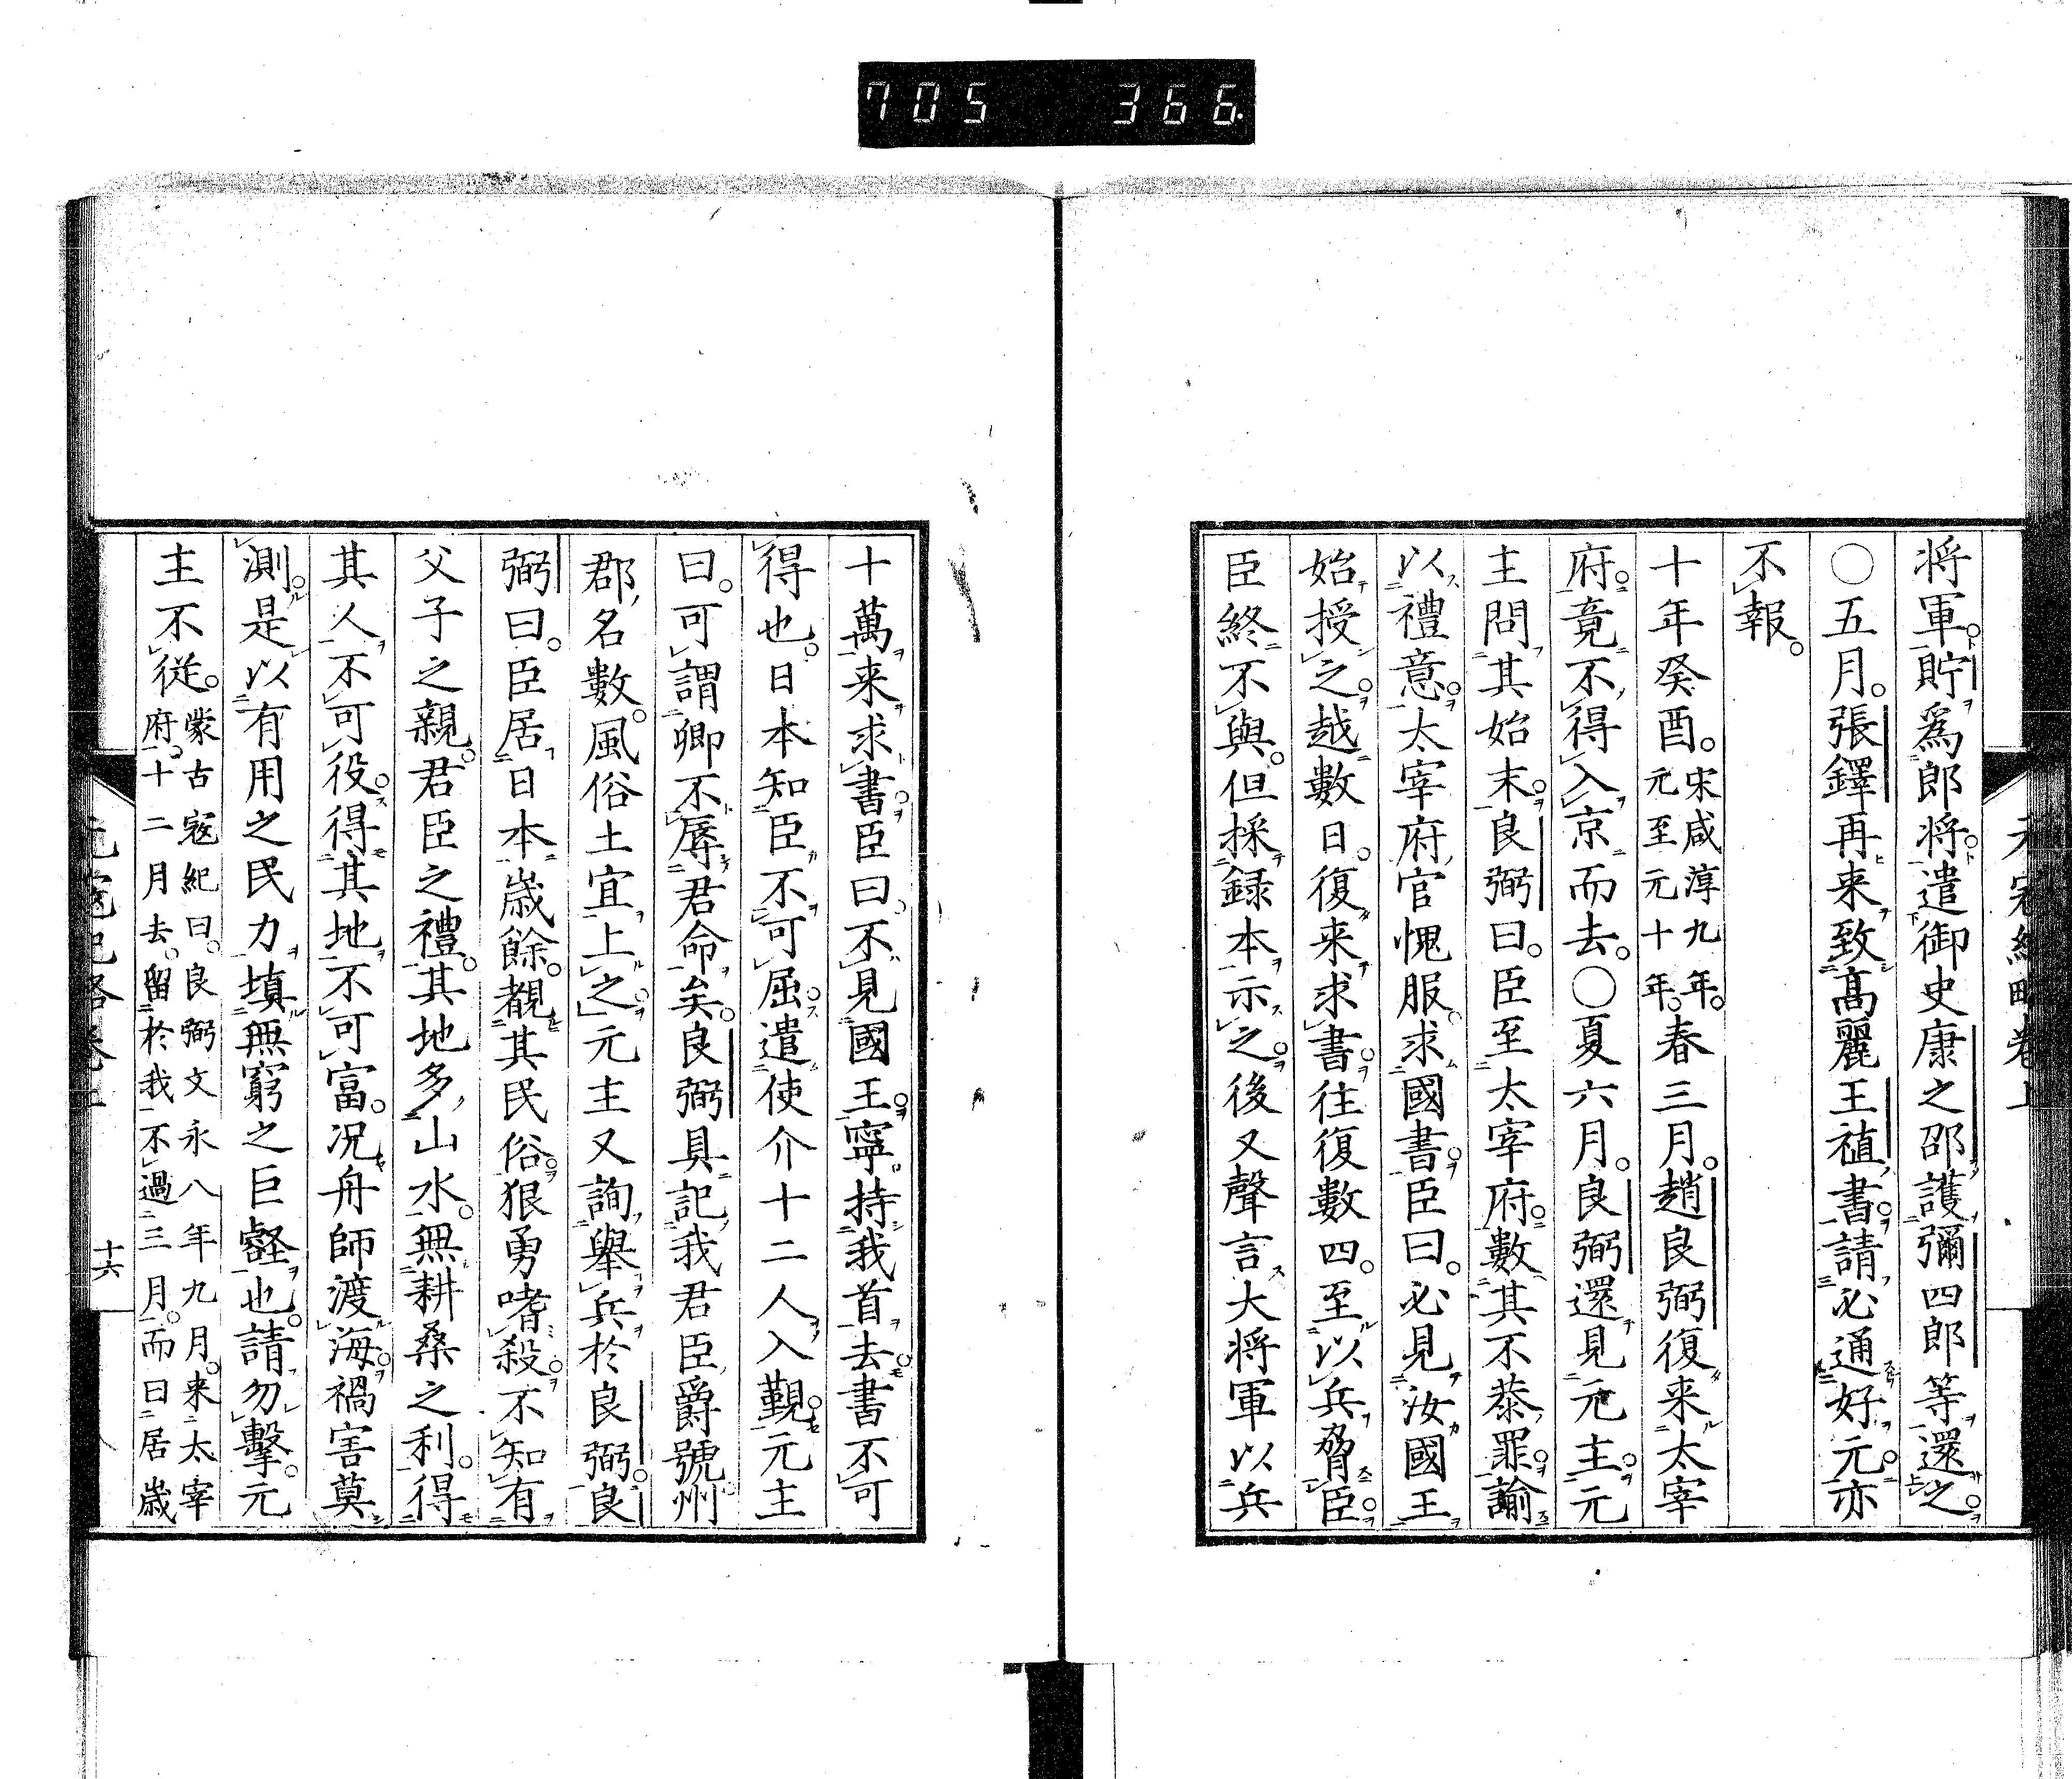 705 366
将軍。貯爲郎將。遣御史康之邵護彌四郎等還之。
○五月。張鐸再来致高麗王禃書。請必通好。元亦
不報。
十年癸酉。宋咸淳九年。元至元十年。春三月。趙良弼復来太宰
府。竟不得入京而去。○夏六月。良弼還見元主。元
主問其始末。良弼曰。臣至太宰府。數其不恭罪。諭
以禮意。太宰府官愧服。求國書。臣曰。必見汝國王
始授之。越數日。復来求書。往復數四。至以兵脅臣。
臣終不與。但採録本示之。後又聲言大将軍以兵
十萬来求書。臣曰。不見國王。寧持我首去。書不可
得也。日本知臣不可屈。遣使介十二人入覲。元主
曰。可謂卿不辱君命矣。良弼具記我君臣爵號州
郡名數。風俗土宜上之。元主又詢舉兵於良弼。良
弼曰。臣居日本歳餘。覩其民俗。狠勇嗜殺。不知有
父子之親。君臣之禮。其地多山水。無耕桑之利。得
其人不可役。得其地不可富。況舟師渡海。禍害莫
測。是以有用之民力。填無窮之巨壑也。請勿擊。元
主不從。蒙古寇紀曰。良弼文永八年九月。来太宰
府。十二月去。留於我不過三月。而曰居歳
十六